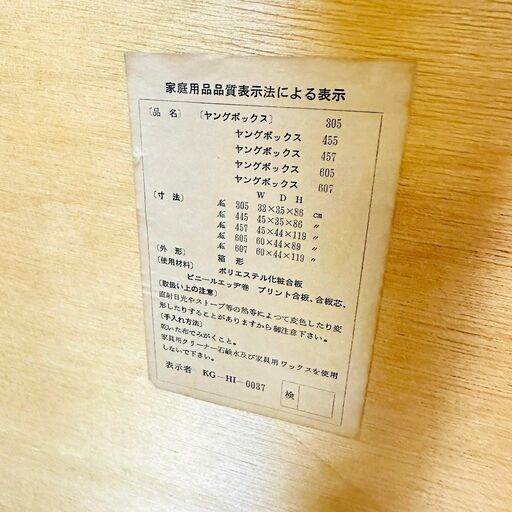 家庭用品品質表示法による表示
〔品名〕 〔ヤングボックス〕 305
ヤングボックス 455
ヤングボックス 457
ヤングボックス 605
ヤングボックス 607
〔寸法〕 W D H
№ 305 33×35×86 cm
№ 445 45×35×86 〃
№ 457 45×44×119 〃
№ 605 60×44×89 〃
№ 607 60×44×119 〃
〔外形〕 箱形
〔使用材料〕 ポリエステル化粧合板
ビニールエッヂ巻 プリント合板、合板芯、
〔取扱い上の注意〕
直射日光やストーブ等の熱等によつて変色したり変
形したりすることがありますから御注意下さい。
〔手入れ方法〕
乾いた布でみがくこと。
家具用クリーナー石鹼水及び家具用ワックスを使用
しないで下さい。
表示者 KG－HI－0037
検